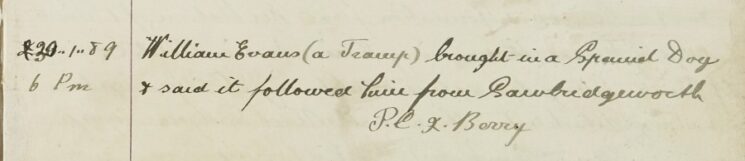 29..1..89 William Evans (a Tramp) brought in a Spaniel Dog
6 Pm & said it followed him from Sawbridgeworth
P.C. J. Berry